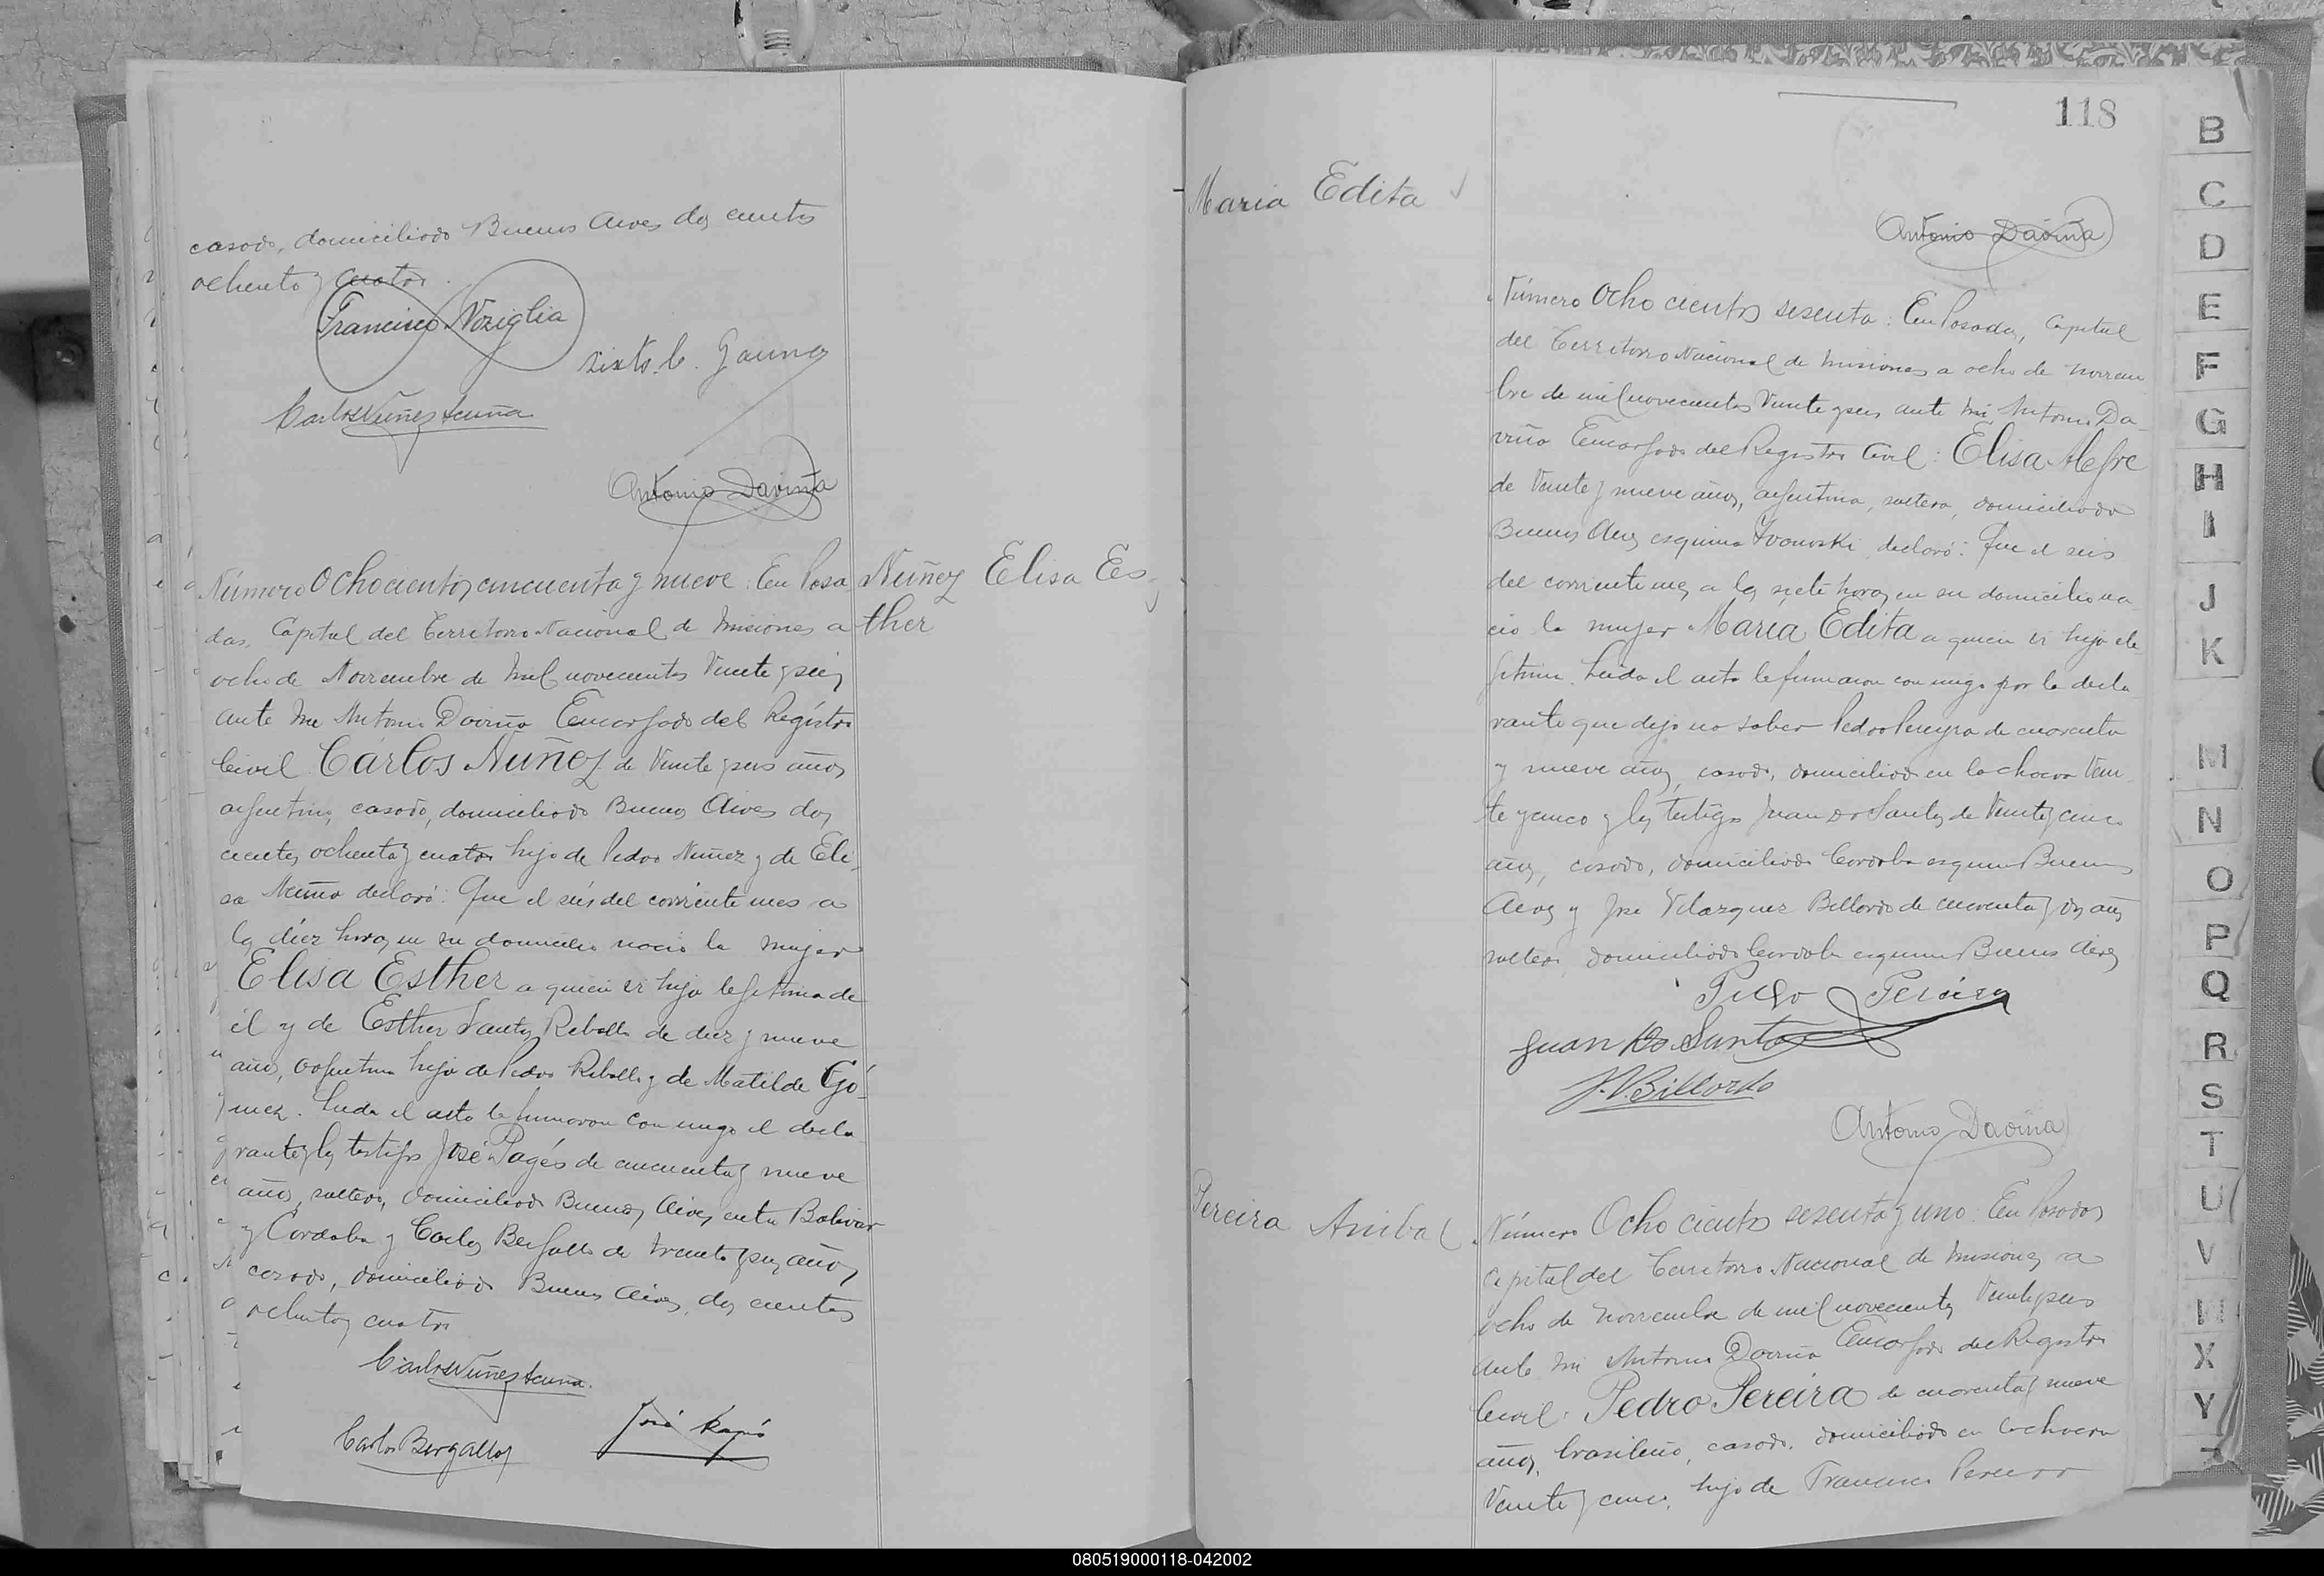 casado, domiciliado Buenos Aires dos cientos
ochenta y cuatro.
Francisco Noziglia
Sixto C. Gauna
Carlos Nuñez Acuña
Antonio Daviña
Número Ochocientos cincuenta y nueve: En Posa
das, Capital del Territorio Nacional de Misiones a
ocho de Noviembre de mil novecientos veinte y seis
ante mi Antonio Daviña Encargado del Registro
Civil Carlos Nuñez de veinte y seis años
argentino, casado, domiciliado Buenos Aires dos
cientos ochenta y cuatro hijo de Pedro Nuñez y de Eli-
sa declaró: Que el seis del corriente mes a
las diez horas en su domicilio nació la mujer
Elisa Esther a quien es hija legitima de
él y de Esther Santos Rebollo de diez y nueve
años, argentina hija de Pedro Rebollo y de Matilde Gó-
mez. Leida el acta la firmaron conmigo el decla
rante y los testigos José Pagés de cincuenta y nueve
años, soltero, domiciliado Buenos Aires entre Bolivar
y Cordoba y Carlos Bergallo de treinta y seis años,
casado, domiciliado Buenos Aires dos cientos
ochenta y cuatro
Carlos Nuñez Acuña.
Carlos Bergallo
José Pagés
Nuñez Elisa Es-
ther
118
Maria Edita
Antonio Daviña
Número Ocho cientos sesenta: En Posadas, Capital
del Territorio Nacional de Misiones a ocho de noviem
bre de mil novecientos veinte y seis ante mi, Antonio Da-
viña Encargado del Registro Civil: Elisa
de veinte y nueve años, argentina, soltera, domiciliada
Buenos Aires esquina declaró: Que el seis
del corriente mes a las siete horas en su domicilio na
ció la mujer María Edita a quien es hija ile
gitima. Leida el acta la firmaron conmigo por la decla
rante que dijo no saber Pedro Pereyra de cuarenta
y nueve años, casado, domiciliado en la chacra vein
te y cinco y los testigos Juan Do Santos de veinte y cinco
años, casado, domiciliado Cordoba esquina Buenos
Aires y José Velazquez Billordo de cuarenta y dos años
soltero, domiciliado Cordoba esquina Buenos Aires
Pereira
Juan Do Santos
J. V. Billordo
Antonio Daviña
Pereira Anibal
Número Ocho cientos sesenta y uno: En Posadas
Capital del Territorio Nacional de Misiones a
ocho de noviembre de mil novecientos veinte y seis
ante mi Antonio Daviña Encargado del Registro
Civil: Pedro Pereira de cuarenta y nueve
años, brasileño, casado, domiciliado en la chacra
veinte y cinco, hijo de Francisco Pereira
B
C
D
E
F
G
H
I
J
K
M
N
O
P
Q
R
S
T
U
V
W
X
Y
Z
080519000118-042002